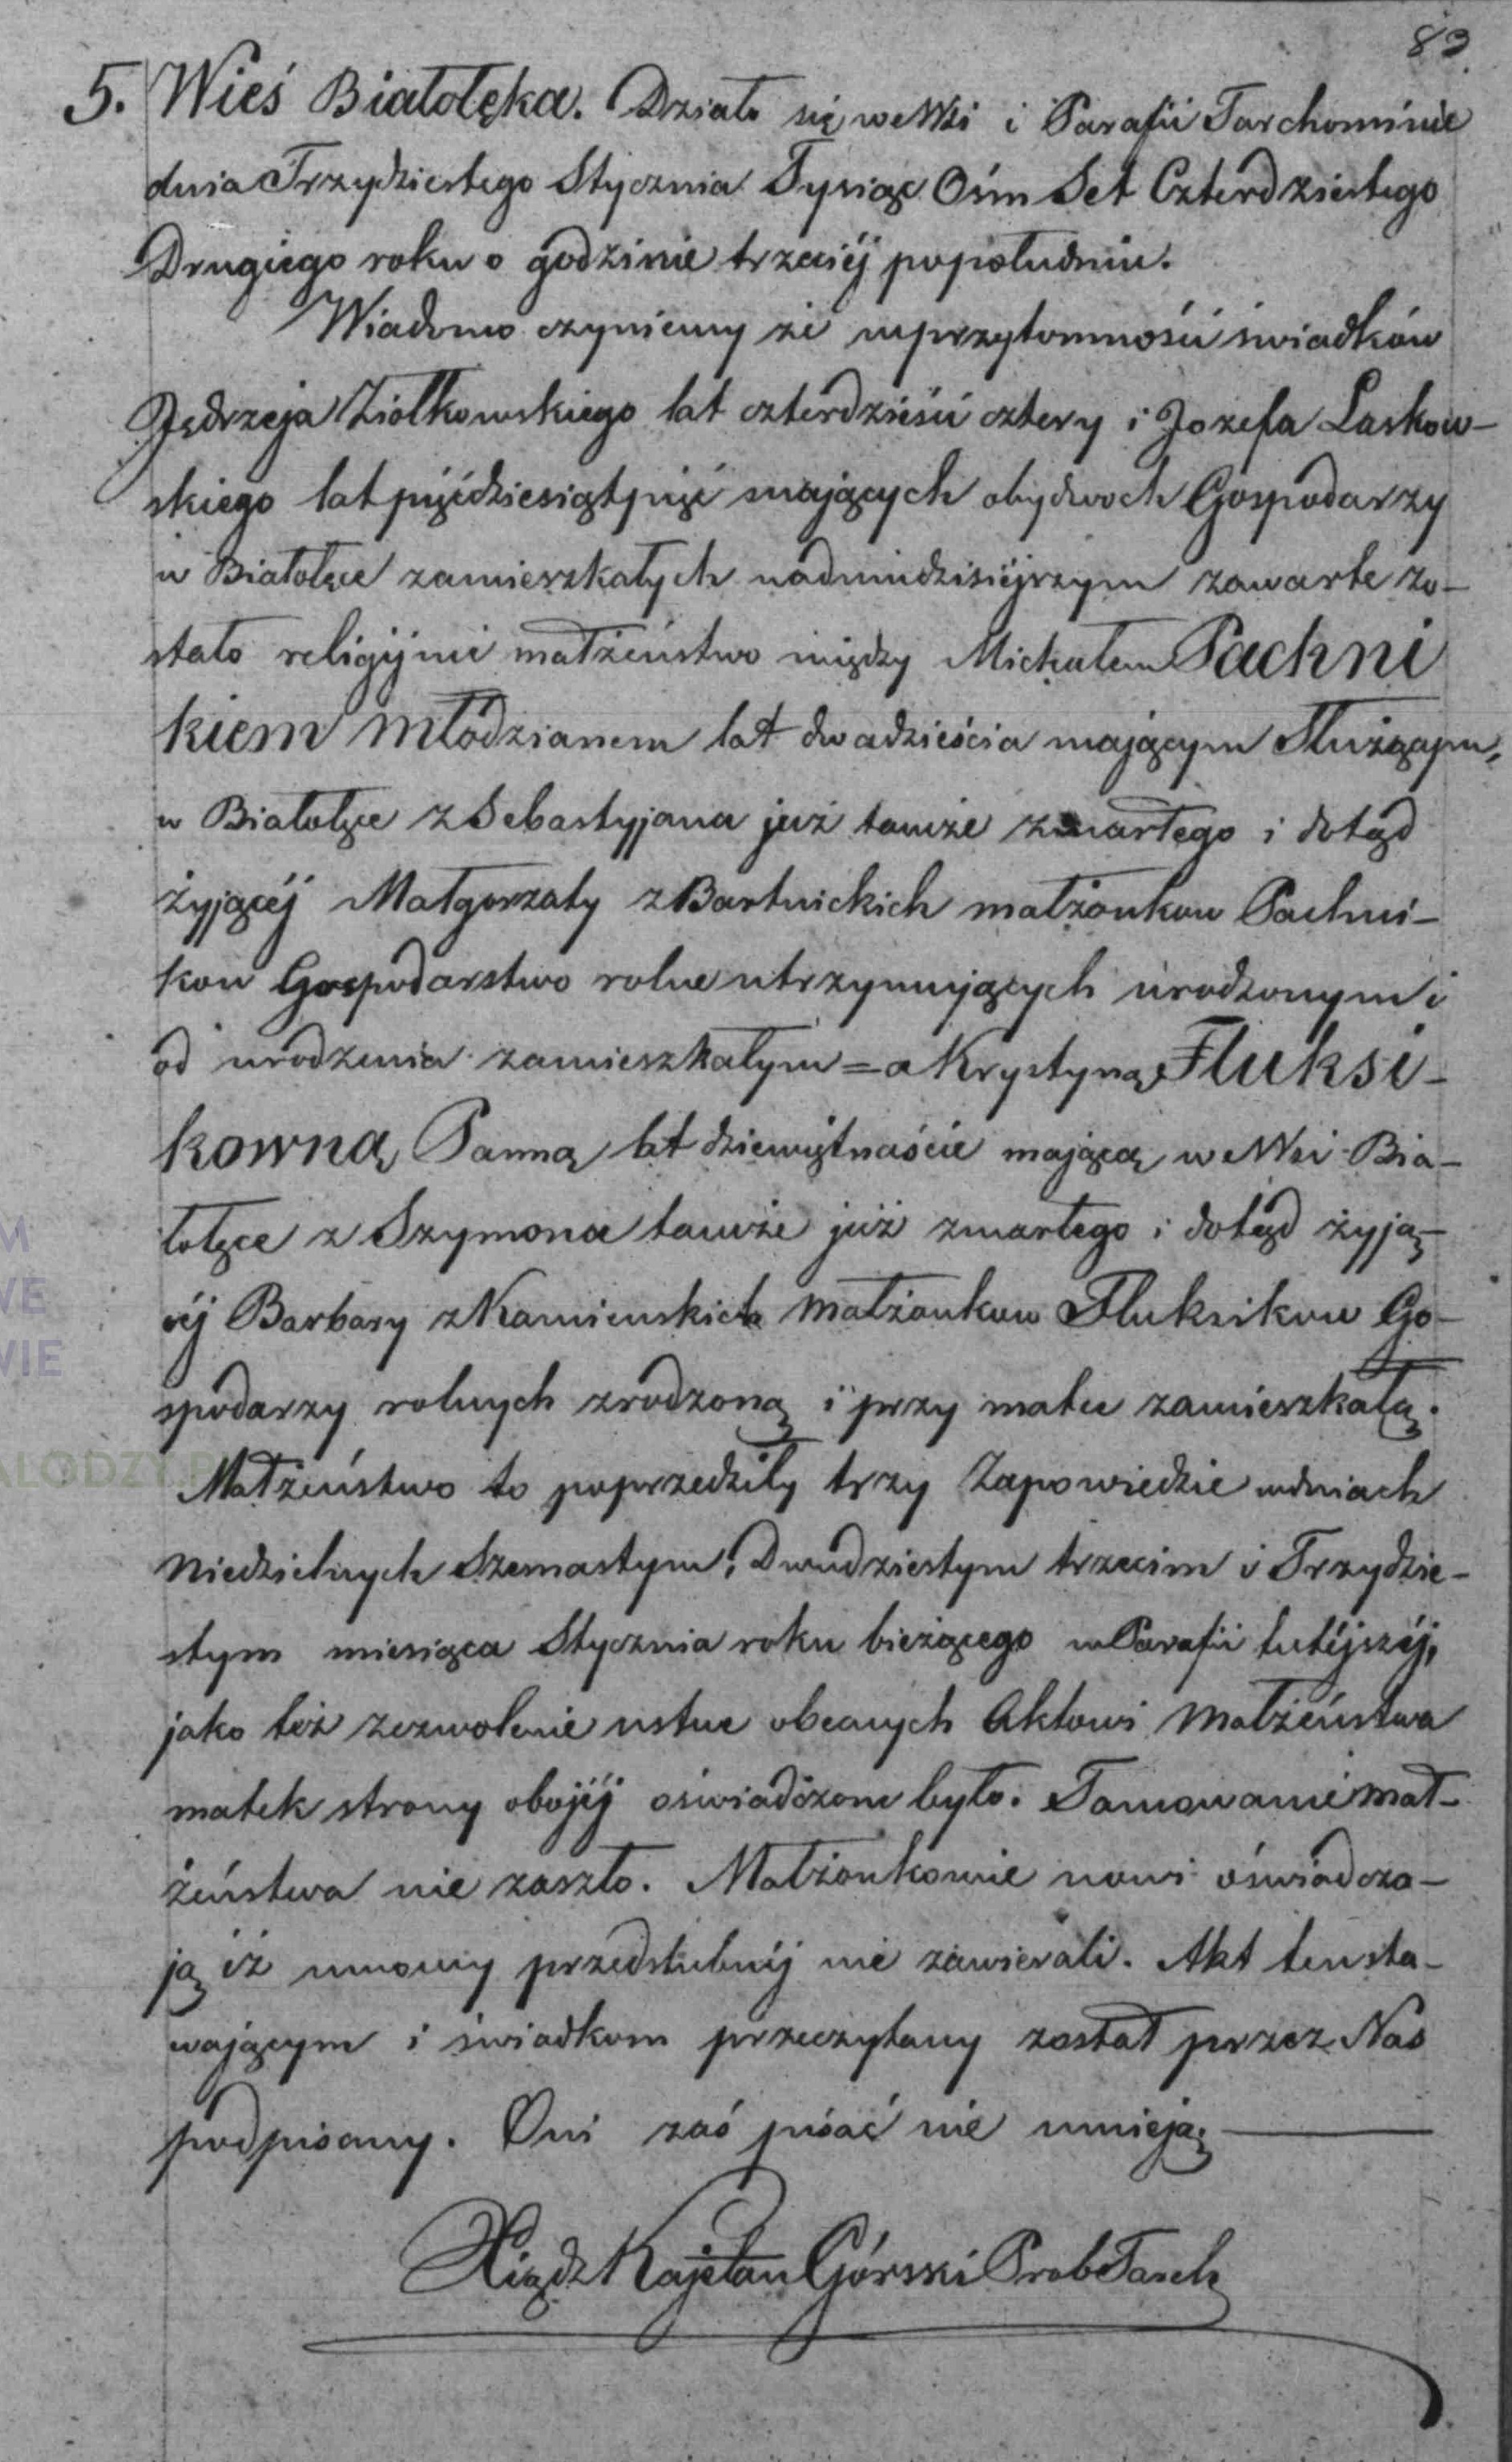 83
5. Wieś Białołęka. Działo się we Wsi i Parafii Tarchominie
dnia Trzydziestego Stycznia Tysiąc Ośm Set Czterdziestego
Drugiego roku o godzinie trzeciéj popołudniu.
Wiadomo czyniemy że wprzytomności świadków
Jędrzeja Ziółkowskiego lat czterdzieści cztery i Jozefa Laskow-
skiego lat pięćdziesiątpięć mających obydwoch Gospodarzy
w Białołęce zamieszkałych wdniudzisiéjszym zawarte zo-
stało religijnie małżeństwo między Michałem Pachni
kiem Młodzianem lat dwadzieścia mającym Służącym,
w Białołęce z Sebastyjana już tamże zmarłego i dotąd
żyjącéj Małgorzaty z Bartnickich małżonkow Pachni-
kow Gospodarstwo rolne utrzymujących urodzonym i
od urodzenia zamieszkałym = a Krystyną Fluksi-
kowną Panną lat dziewiętnaście mającą we Wsi Bia-
łołęce z Szymona tamże już zmarłego i dotąd żyją-
céj Barbary z Kamienskich Małżonkow Fluksikow Go-
spodarzy rolnych zrodzoną i przy matce zamieszkałą.
Małżeństwo to poprzedziły trzy Zapowiedzie wdniach
Niedzielnych Szesnastym, Dwudziestym trzecim i Trzydzie-
stym miesiąca Stycznia roku bieżącego w Parafii tutéjszéj,
jako też zezwolenie ustne obecnych Aktowi Małżeństwa
matek strony obojéj oświadczone było. Tamowanie Mał-
żeństwa nie zaszło. Małżonkowie nowi oświadcza-
ją iż umowy przedślubnéj nie zawierali. Akt ten sta-
wającym i świadkom przeczytany został przez Nas
podpisany. Oni zaś pisać nie umieją.
Xiądz Kajetan Górski Prob Tarch
M
WE
WIE
ALODZY.P